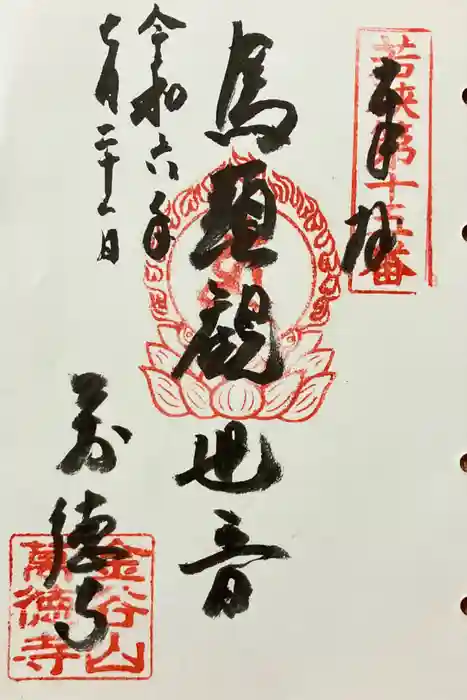 若狭第十番
奉拝
馬頭観世音
令和六年
七月二十一日
萬徳寺
金谷山
萬徳寺